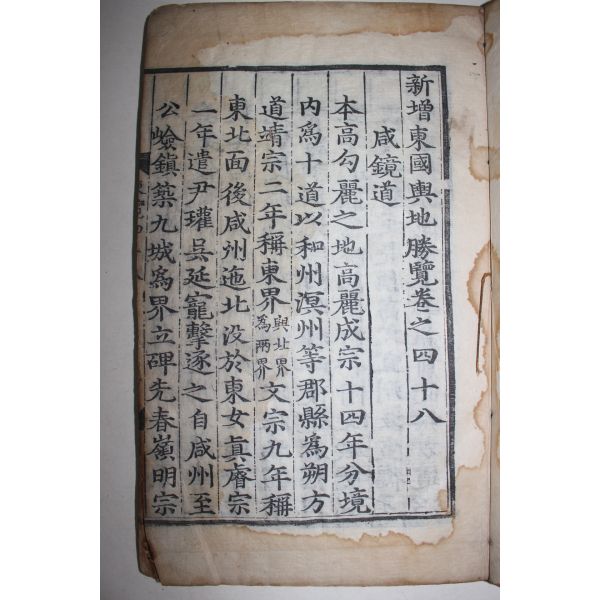 新增東國輿地勝覽卷之四十八
咸鏡道
本高勾麗之地高麗成宗十四年分境
內爲十道以和州溟州等郡縣爲朔方
道靖宗二年稱東界與北界爲兩界文宗九年稱
東北面後咸州迤北没於東女眞睿宗
二年遣尹瓘吳延寵擊逐之自咸州至
公嶮鎭築九城爲界立碑先春嶺明宗